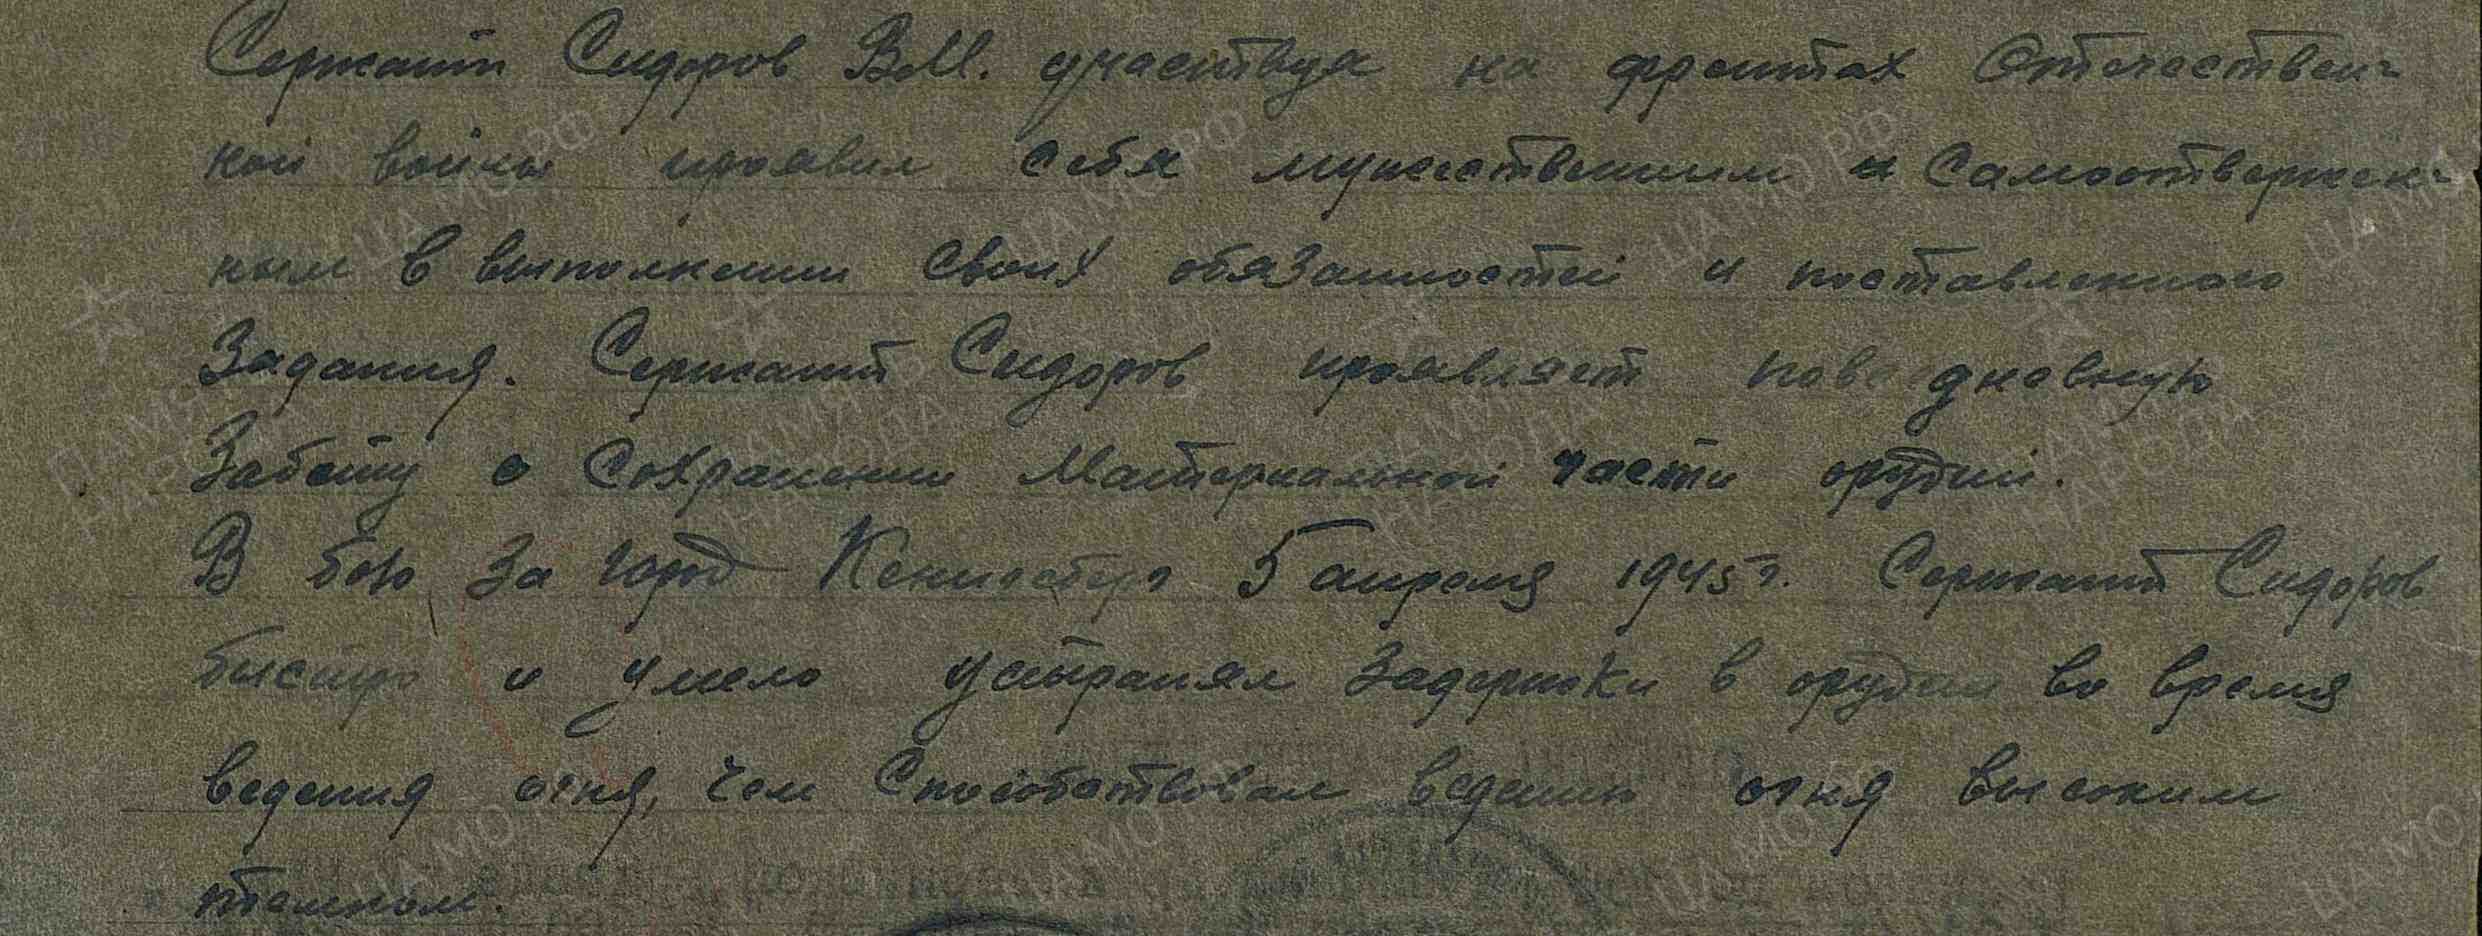 Сержант Сидоров В.М. участвуя на фронтах Отечествен-
ной войны проявил себя мужественным и самоотвержен-
ным в выполнении своих обязанностей и поставленного
задания. Сержант Сидоров проявляет повседневную
заботу о сохранении материальной части орудий.
В бою за город Кенигсберг 5 апреля 1945 г. Сержант Сидоров
быстро и умело устранял задержки в орудии во время
ведения огня, чем способствовал ведению огня высоким
темпом.